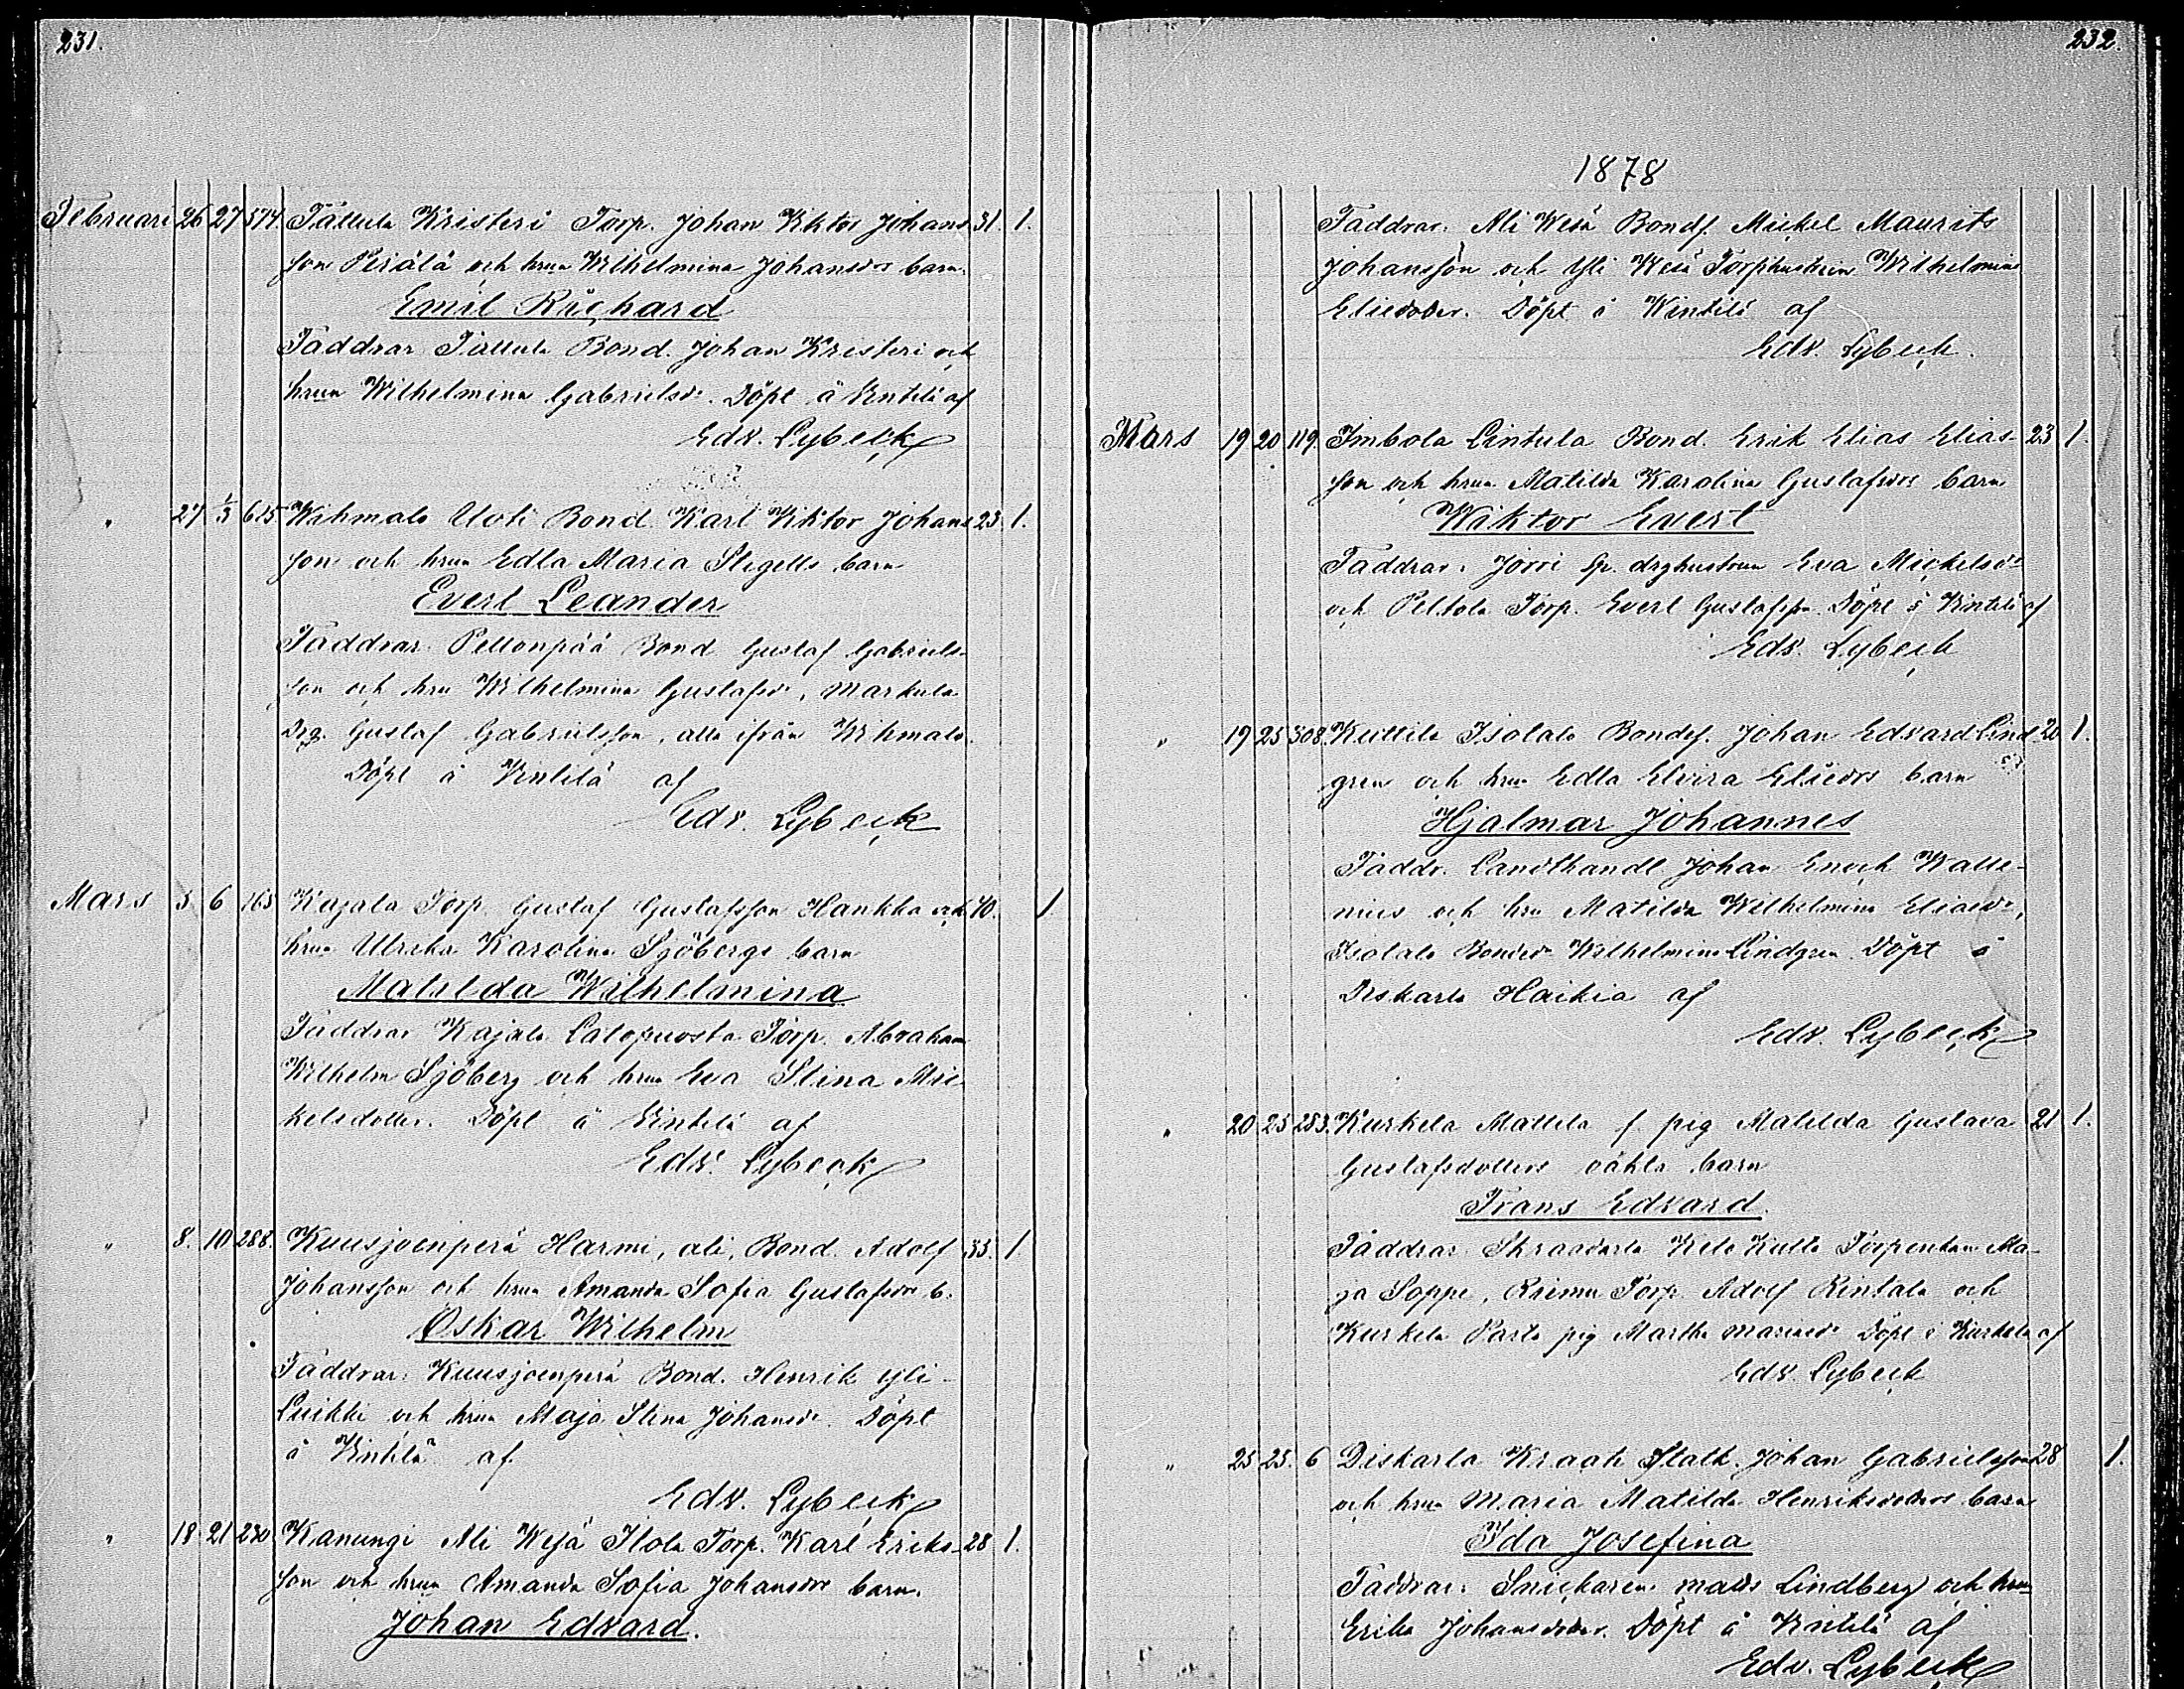 231.
Februari 26 27 574. Tällula Kristeri Torp. Johan Viktor Johans- 31. 1.
son Perälä och hrun Wilhelmina Johansdrs barn.
Emil Richard
Faddrar Tällula Bond. Johan Kristeri och
hrun Wilhelmina Gabrielsdr. Döpt å Vintilä af
Edv. Lybeck
" 27 1/3 615 Wihmalo Uoti Bond. Karl Viktor Johans 23. 1.
son och hrun Edla Maria Stigells barn
Evert Leander
Faddrar. Peltonpää Bond Gustaf Gabriels-
son och hru Wilhelmina Gustafsdr, Markula
Drg. Gustaf Gabrielsson, alla ifrån Wihmalo.
Döpt å Vintilä af
Edv. Lybeck
Mars 5 6 163 Kajala Torp. Gustaf Gustafsson Hankka och 40. 1
hrun Ulrika Karolina Sjöbergs barn
Matilda Wilhelmina
Faddrar Kajala Latopuosta Torp. Abraham
Wilhelm Sjöberg och hrun Eva Stina Mic-
kelsdotter. Döpt å Vintilä af
Edv. Lybeck
" 8. 10 288. Kuusjoenperä Harmi, ali, Bond. Adolf 33. 1
Johansson och hrun Amanda Sofia Gustafsdrs b.
Oskar Wilhelm
Faddrar: Kuusjoenperä Bond. Henrik Yli-
Luikki och hrun Maja Stina Johansdr. Döpt
å Vintilä af
Edv. Lybeck
" 18 21 230. Kanungi Ali Wesä Ilola Torp. Karl Eriks- 28 1.
son och hrun Amanda Sofia Johansdrs barn.
Johan Edvard.
232.
1878
Faddrar. Ali Wesä Bondf. Mickel Maurits
Johansson och Yli Wesä Torphustrun Wilhelmina
Eliedoter. Döpt å Wintilä af
Edv. Lybeck.
Mars 19 20 119. Imbola Lintula Bond. Erik Elias Elias- 23 1.
son och hrun Matilda Karolina Gustafsdrs barn
Wiktor Evert
Faddrar: Jörri Sp. drghustrun Eva Mickelsdr
och Peltola Torp. Evert Gustafsson. Döpt å Vintilä af
Edv. Lybeck
" 19 25 308. Kuttila Isolalo Bondef. Johan Edvard Lind- 20 1.
gren och hrun Edla Elvira Eliedrs barn
Hjalmar Johannes
Faddr. Landthandl Johan Enoch Walle-
nius och hru Matilda Wilhelmina Eliaedr,
Isolalo Bonded. Wilhelmina Lindgren. Döpt å
Diskarla Haikia af
Edv. Lybeck
" 20 25 283. Kurkela Mattila f. pig Matilda Gustava 21 1.
Gustafsdotters oäkta barn
Frans Edvard.
Faddrar. Skraddarla Keto Kulta Torpenkan Ma-
ja Soppi, Kriimu Torp. Adolf Rintala och
Kurkela Parta pig Martha Mariaed. Döpt å Kurkela af
Edv. Lybeck
" 25 25. 6 Diskarla Kraati Statk. Johan Gabrielsson 28 1.
och hrun Maria Matilda Henriksdoters barn
Ida Josefina
Faddrar: Snickaren Mads Lindberg och hrun
Erika Johansdoter. Döpt å Vintilä af
Edv. Lybeck